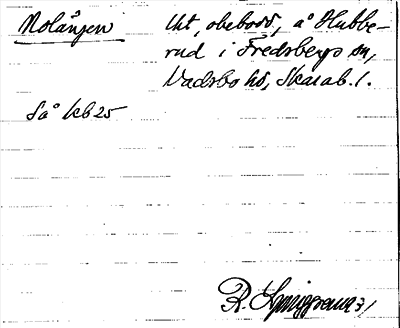 Nolången
Ut, obebodd, å Hubbe-
rud i Fredsbergs sn,
Vadsbo hd, Skarab. l.
Så kb 25
R. 31